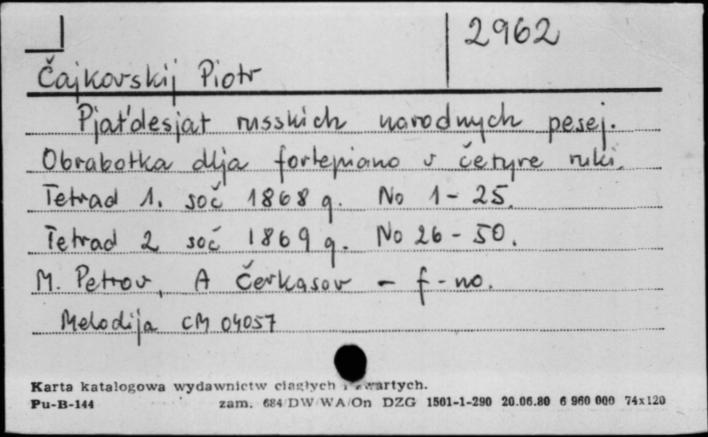 2962
Čajkovskij Piotr
Pjat'desjat russkich narodnych pesej.
Obrabotka dlja fortepiano v četyre ruki.
Tetrad 1. soč 1868 g. No 1-25.
Tetrad 2 soč 1869 g. No 26-50.
M. Petrov, A Čerkasov - f-no.
Melodija CM 04057
Karta katalogowa wydawnictw ciągłych i zwartych.
Pu-B-144 zam. 684/DW/WA/On DZG 1501-1-290 20.06.80 6 960 000 74x120